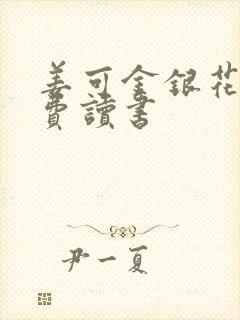 姜可金銀花
費讀書
尹一夏